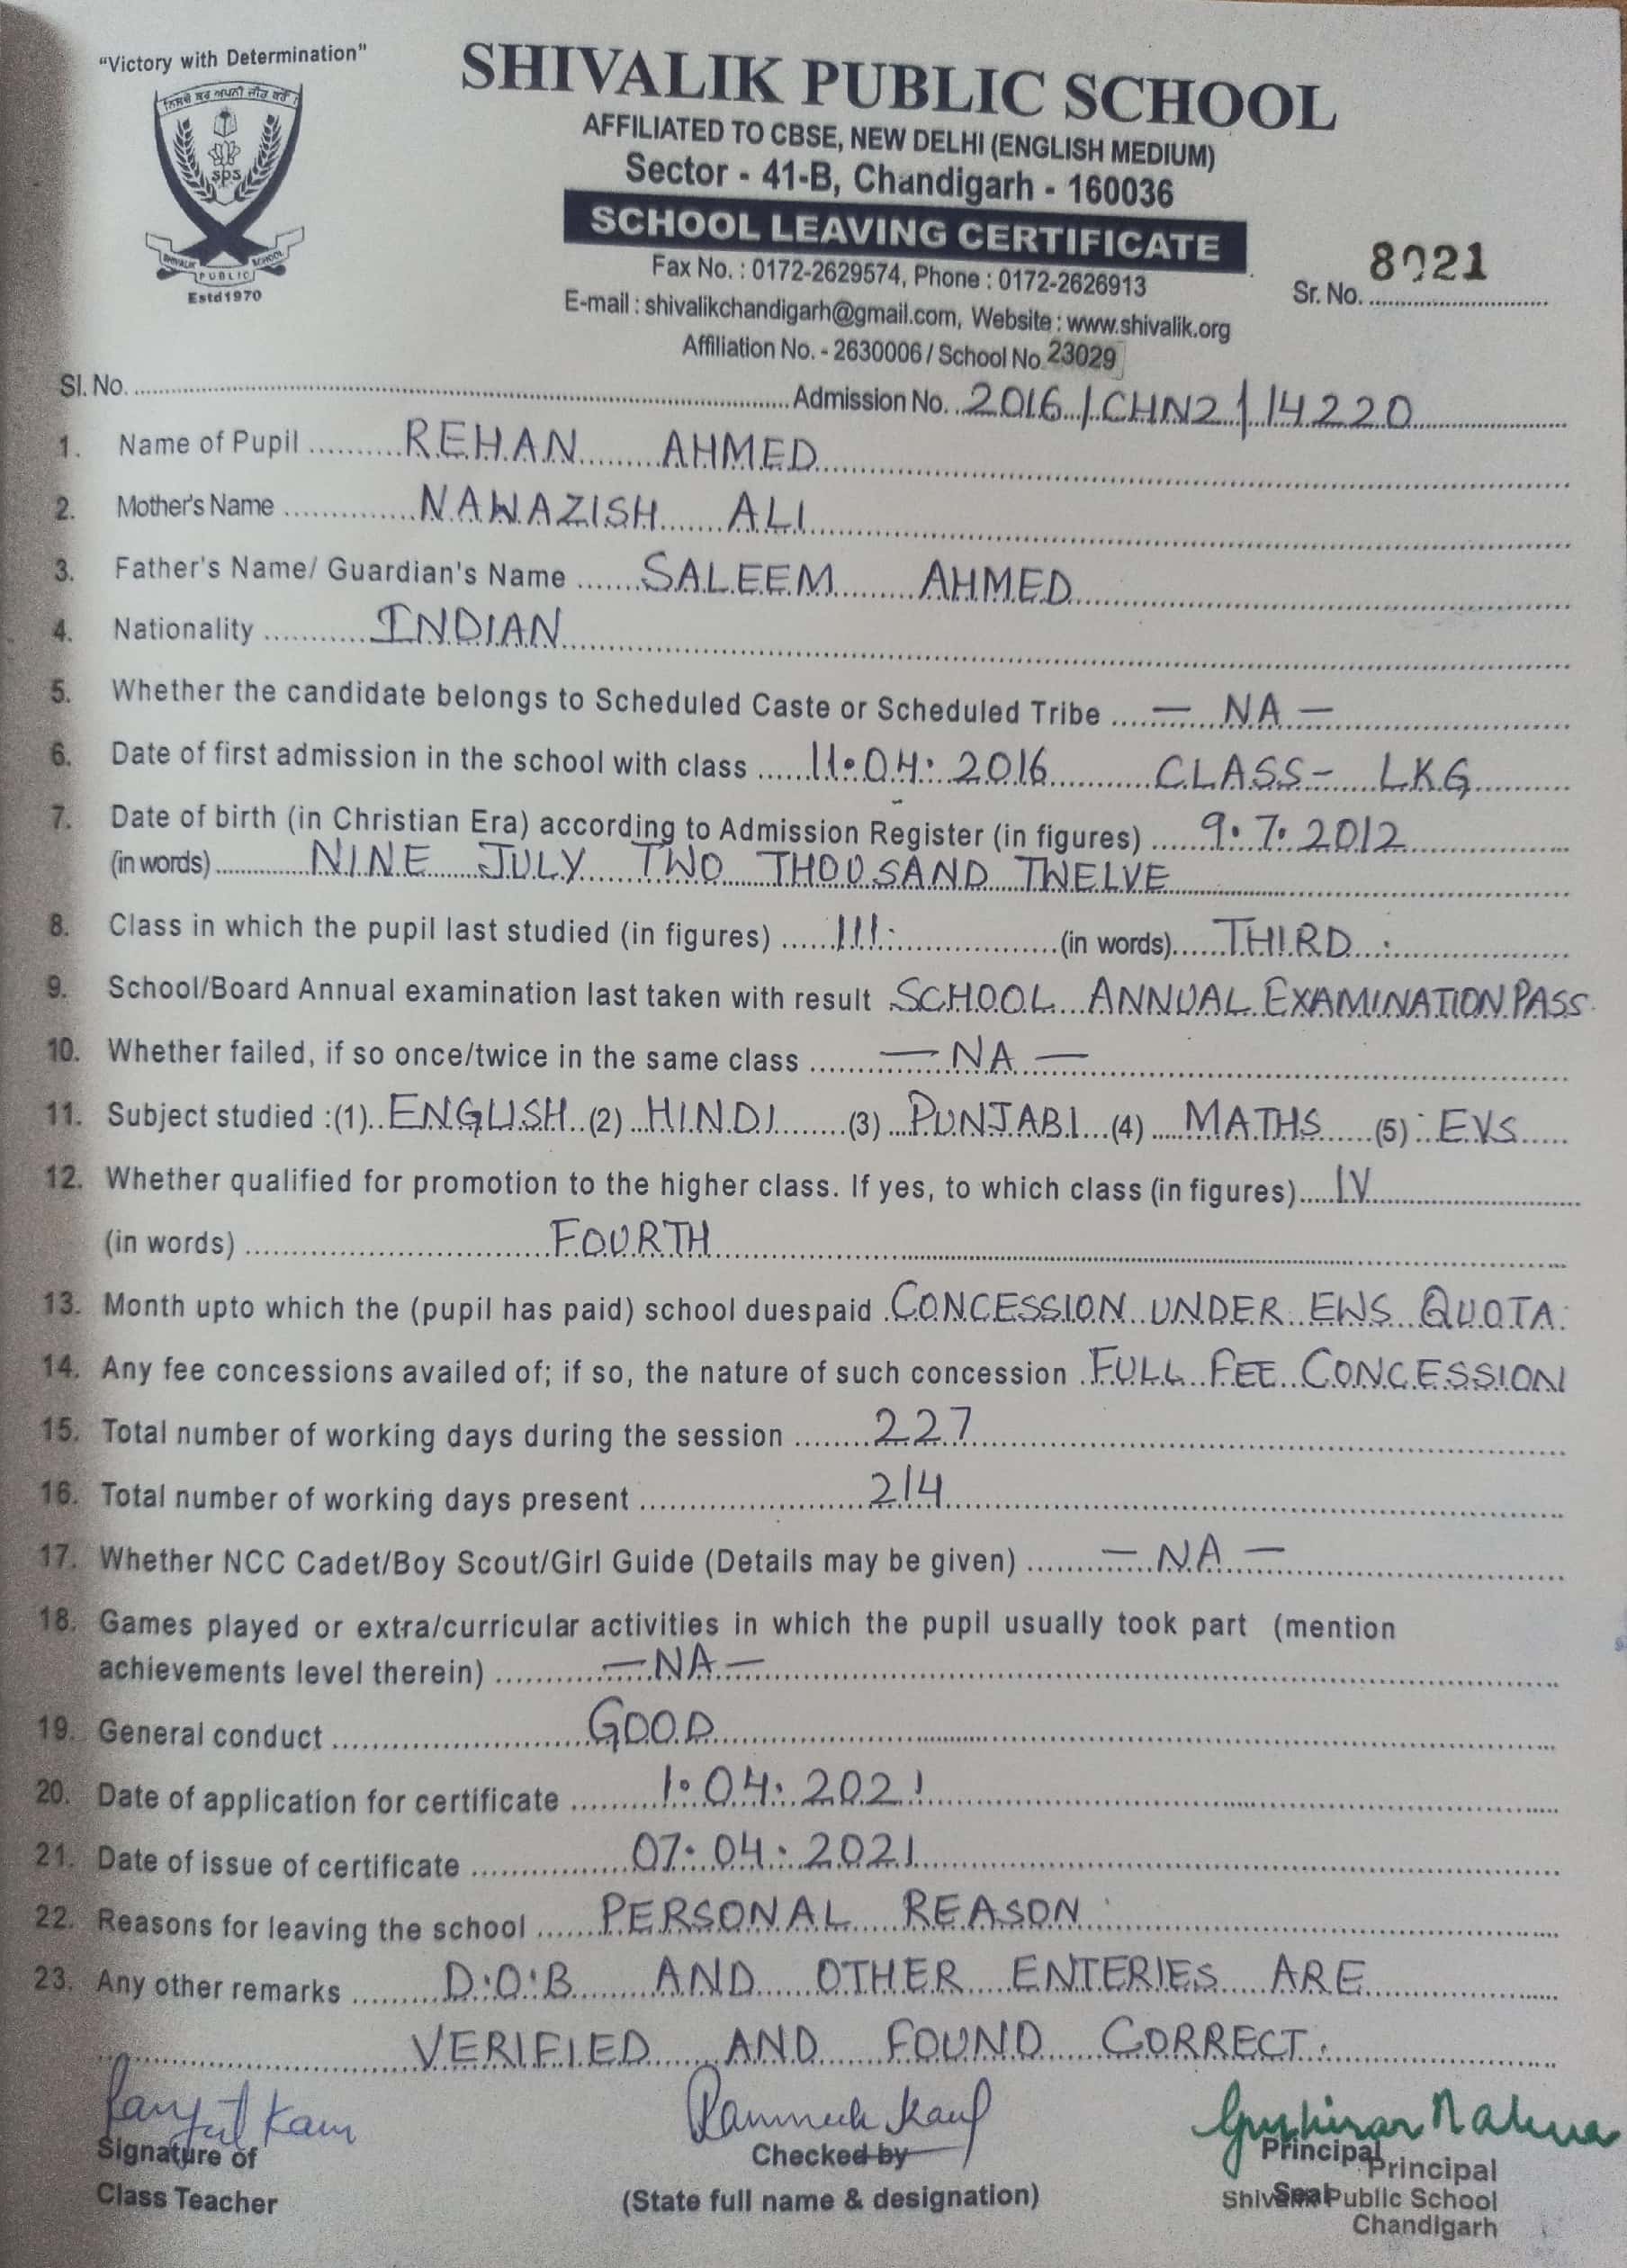 "Victory with Determination"
SHIVALIK PUBLIC SCHOOL
AFFILIATED TO CBSE, NEW DELHI (ENGLISH MEDIUM)
Sector - 41-B, Chandigarh - 160036
SCHOOL LEAVING CERTIFICATE
sps
SHIVALIK PUBLIC SCHOOL
Estd1970
Fax No. : 0172-2629574, Phone : 0172-2626913
Sr. No. 8021
E-mail : shivalikchandigarh@gmail.com, Website : www.shivalik.org
Affiliation No. - 2630006 / School No. 23029
Sl. No. Admission No. 2016/CHN2/14220
1. Name of Pupil REHAN AHMED
2. Mother's Name NAWAZISH ALI
3. Father's Name/ Guardian's Name SALEEM AHMED
4. Nationality INDIAN
5. Whether the candidate belongs to Scheduled Caste or Scheduled Tribe — NA —
6. Date of first admission in the school with class 11.04.2016 CLASS- LKG
7. Date of birth (in Christian Era) according to Admission Register (in figures) 9.7.2012
(in words) NINE JULY TWO THOUSAND TWELVE
8. Class in which the pupil last studied (in figures) III (in words) THIRD
9. School/Board Annual examination last taken with result SCHOOL ANNUAL EXAMINATION PASS
10. Whether failed, if so once/twice in the same class — NA —
11. Subject studied :(1) ENGLISH (2) HINDI (3) PUNJABI (4) MATHS (5) EVS
12. Whether qualified for promotion to the higher class. If yes, to which class (in figures) IV
(in words) FOURTH
13. Month upto which the (pupil has paid) school duespaid CONCESSION UNDER EWS QUOTA
14. Any fee concessions availed of; if so, the nature of such concession FULL FEE CONCESSION
15. Total number of working days during the session 227
16. Total number of working days present 214
17. Whether NCC Cadet/Boy Scout/Girl Guide (Details may be given) — NA —
18. Games played or extra/curricular activities in which the pupil usually took part (mention
achievements level therein) — NA —
19. General conduct GOOD
20. Date of application for certificate 1.04.2021
21. Date of issue of certificate 07.04.2021
22. Reasons for leaving the school PERSONAL REASON
23. Any other remarks D.O.B AND OTHER ENTERIES ARE
VERIFIED AND FOUND CORRECT.
Signature of Checked by Principal
Principal
Class Teacher (State full name & designation) Seal
Shivalik Public School
Chandigarh